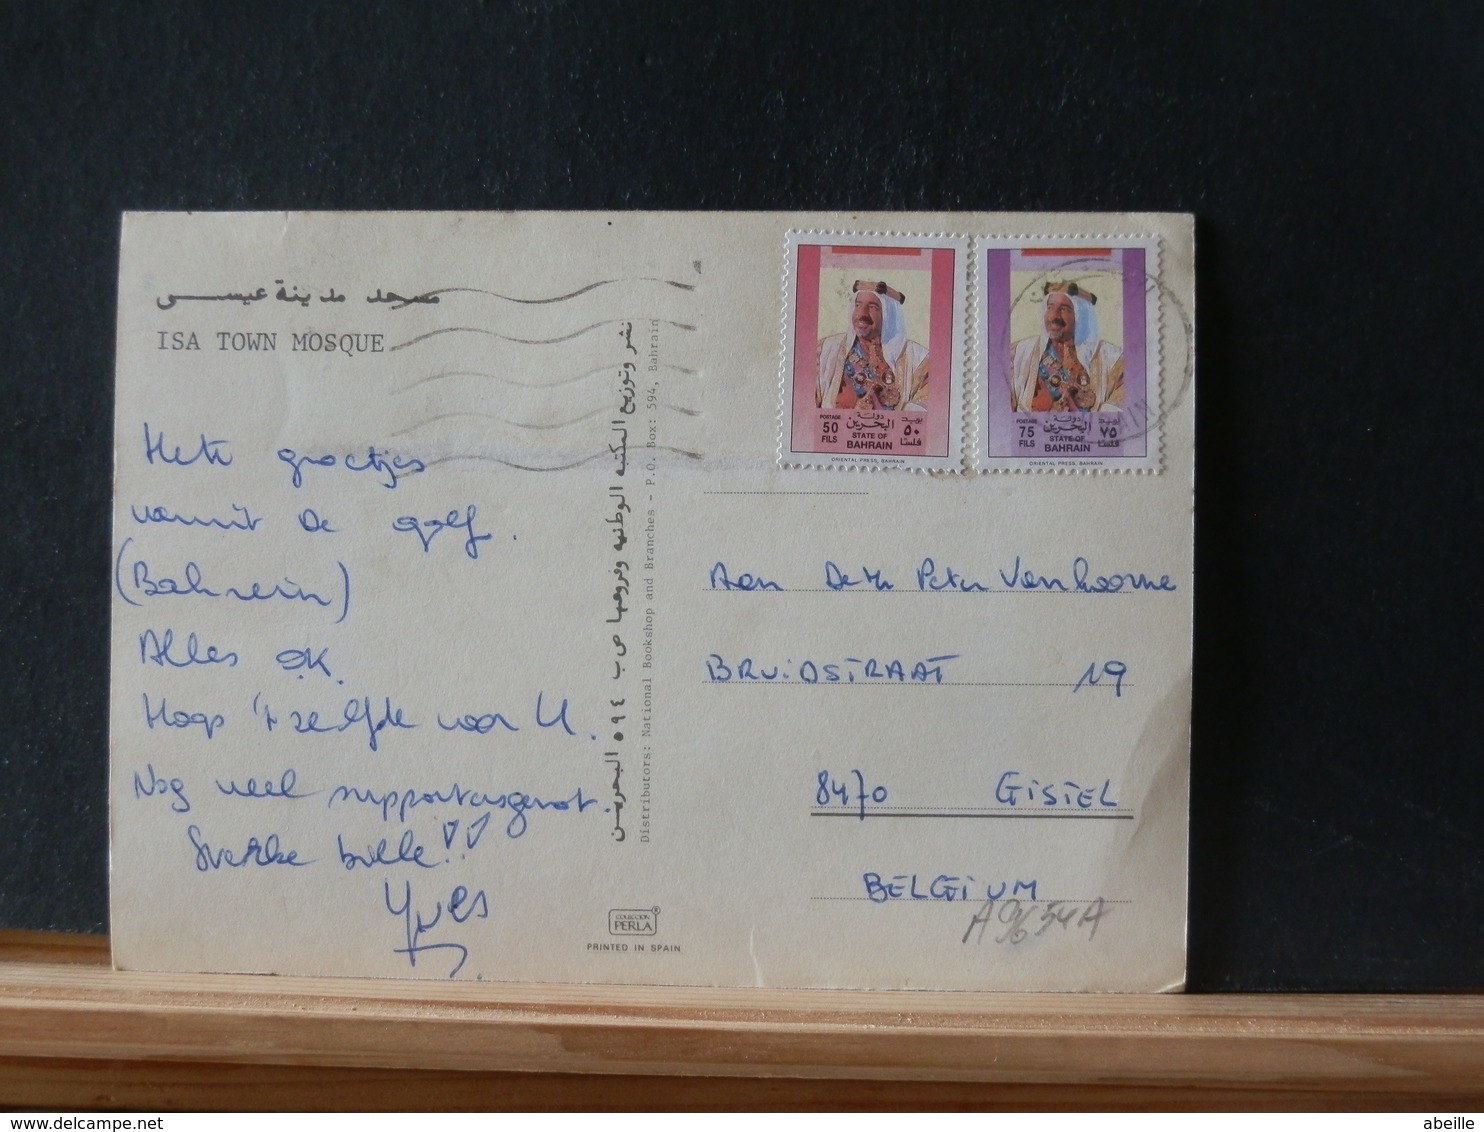 مسجد مدينة عيسى
ISA TOWN MOSQUE
Hete groetjes
vanuit de golf.
(Bahrein)
Alles OK.
Hoop 't zelfde voor U.
Nog veel supportersgenot.
Sterke bolle!!
Yves
نشر وتوزيع المكتبه الوطنيه وفروعها ص ب ٥٩٤ البحرين
Distributors: National Bookshop and Branches - P.O. Box: 594, Bahrain
COLECCION
PERLA
®
PRINTED IN SPAIN
POSTAGE
50
FILS
دولة
البحرين
STATE OF
BAHRAIN
بريد
٥٠
فلسا
ORIENTAL PRESS, BAHRAIN
POSTAGE
75
FILS
دولة
البحرين
STATE OF
BAHRAIN
بريد
٧٥
فلسا
ORIENTAL PRESS, BAHRAIN
Aan De Hr Peter Vanhoorne
BRUIDSTRAAT 19
8470 GISTEL
BELGIUM
A9654A
abeille